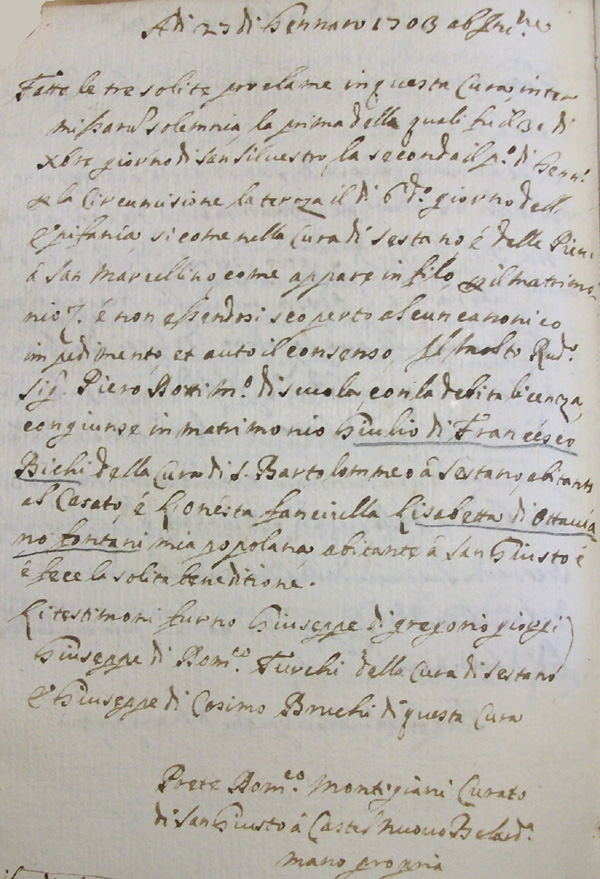 Adi 27 di Gennaro 1703 ab Inc.ne
Fatte le tre solite proclame in questa Cura, inter
missarum solemnia, la prima della quali fu il 31 di
Xbre giorno di San Silvestro, la seconda il p.o di Genn.o
la Circuncisione la terza il di 6 d.o giorno dell
Epifania, si come nella Cura di Sestano é delle Pieve
á San Marcellino, come appare in filo, il matrimo-
nio é non essendosi scoperto alcun canonico
impedimento, et auto il consenso, Il Molto Rud.o
Sig. Piero Botti m.o di scuola, con la debita licenza,
congiunse in matrimonio Giulio di Francesco
Bichi della Cura di S. Bartolommeo á Sestano, abitante
al Casato, é l'onesta fanciulla Lisabetta di Ottavia
no fontani mia popolana abitante á San Giusto é
é fece la solita beneditione.
Li testimoni furno Giuseppe di gregorio gioggi
Giuseppe di Dom.co Turchi della Cura di Sestano
é Giuseppe di Cosimo Bruchi di questa Cura
Prete Dom.co Montigiani Curato
di San Giusto á Castel nuovo Berard.a
mano propria